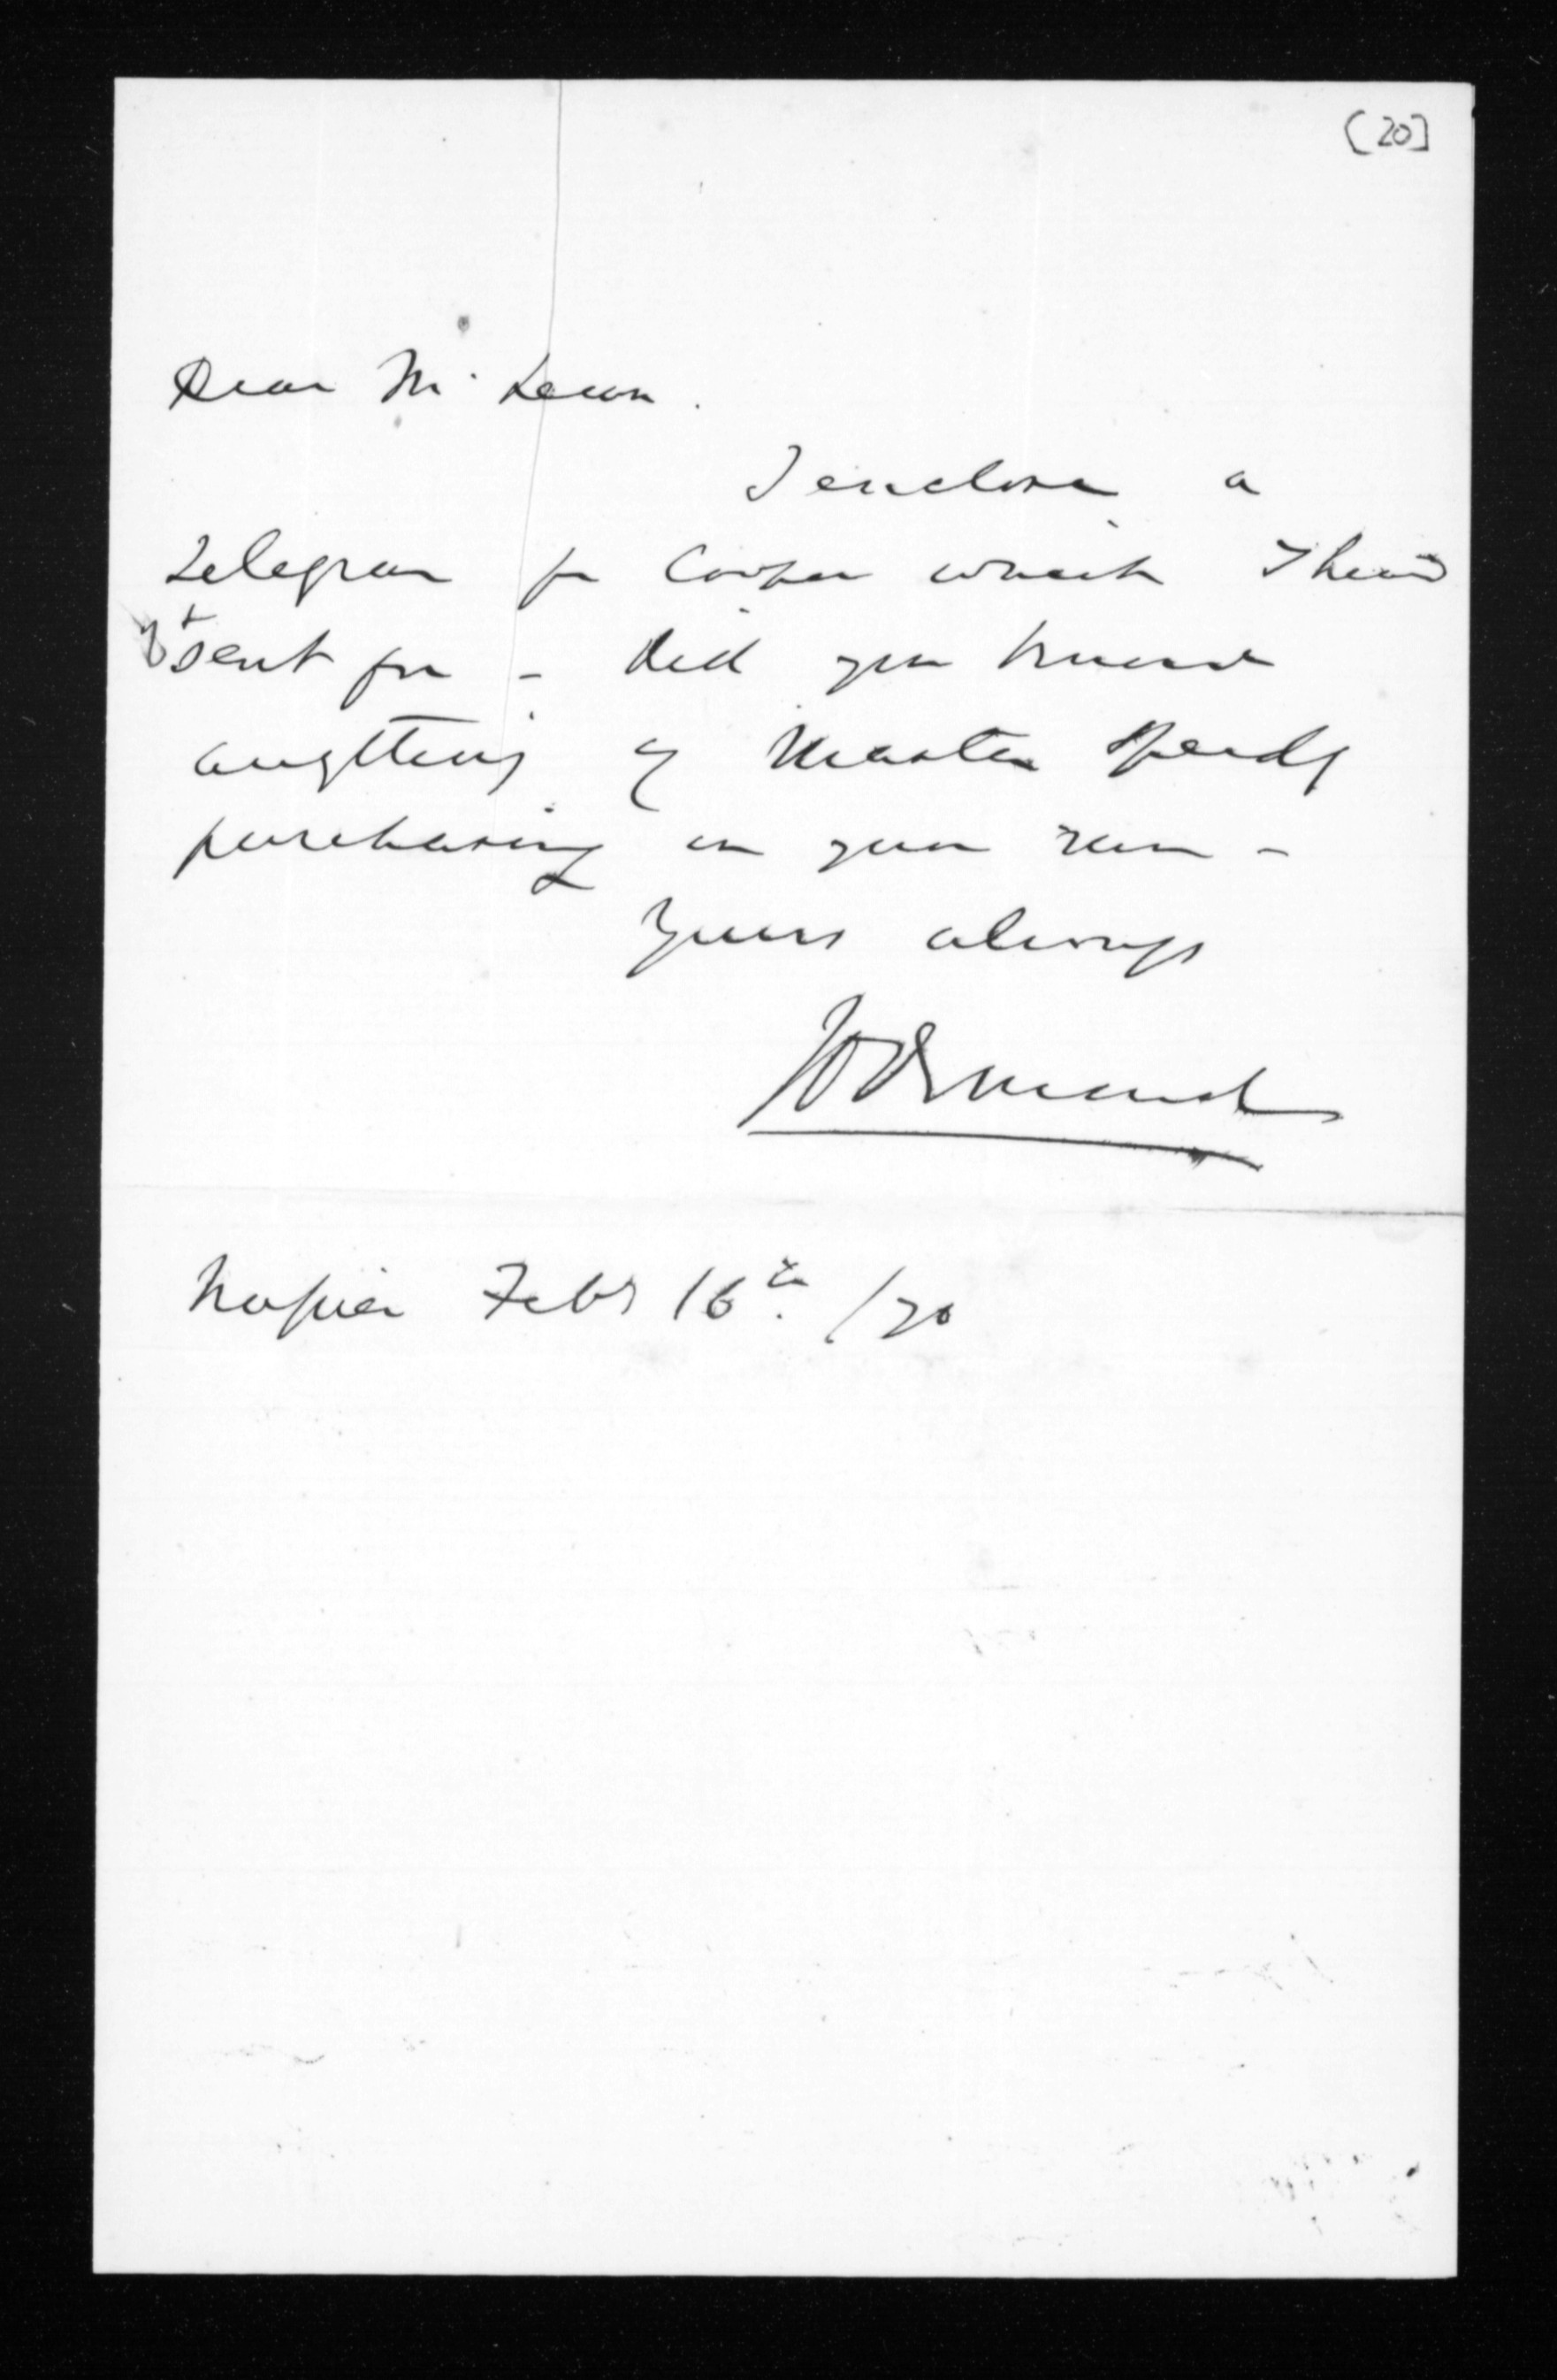 [20]
Dear McLean.
I enclose a
telegram fr Cooper which I have
sent for - Did you know
anything of Master
purchasing in your run -
Yours always
JD Ormond
Napier Feby 16th /70